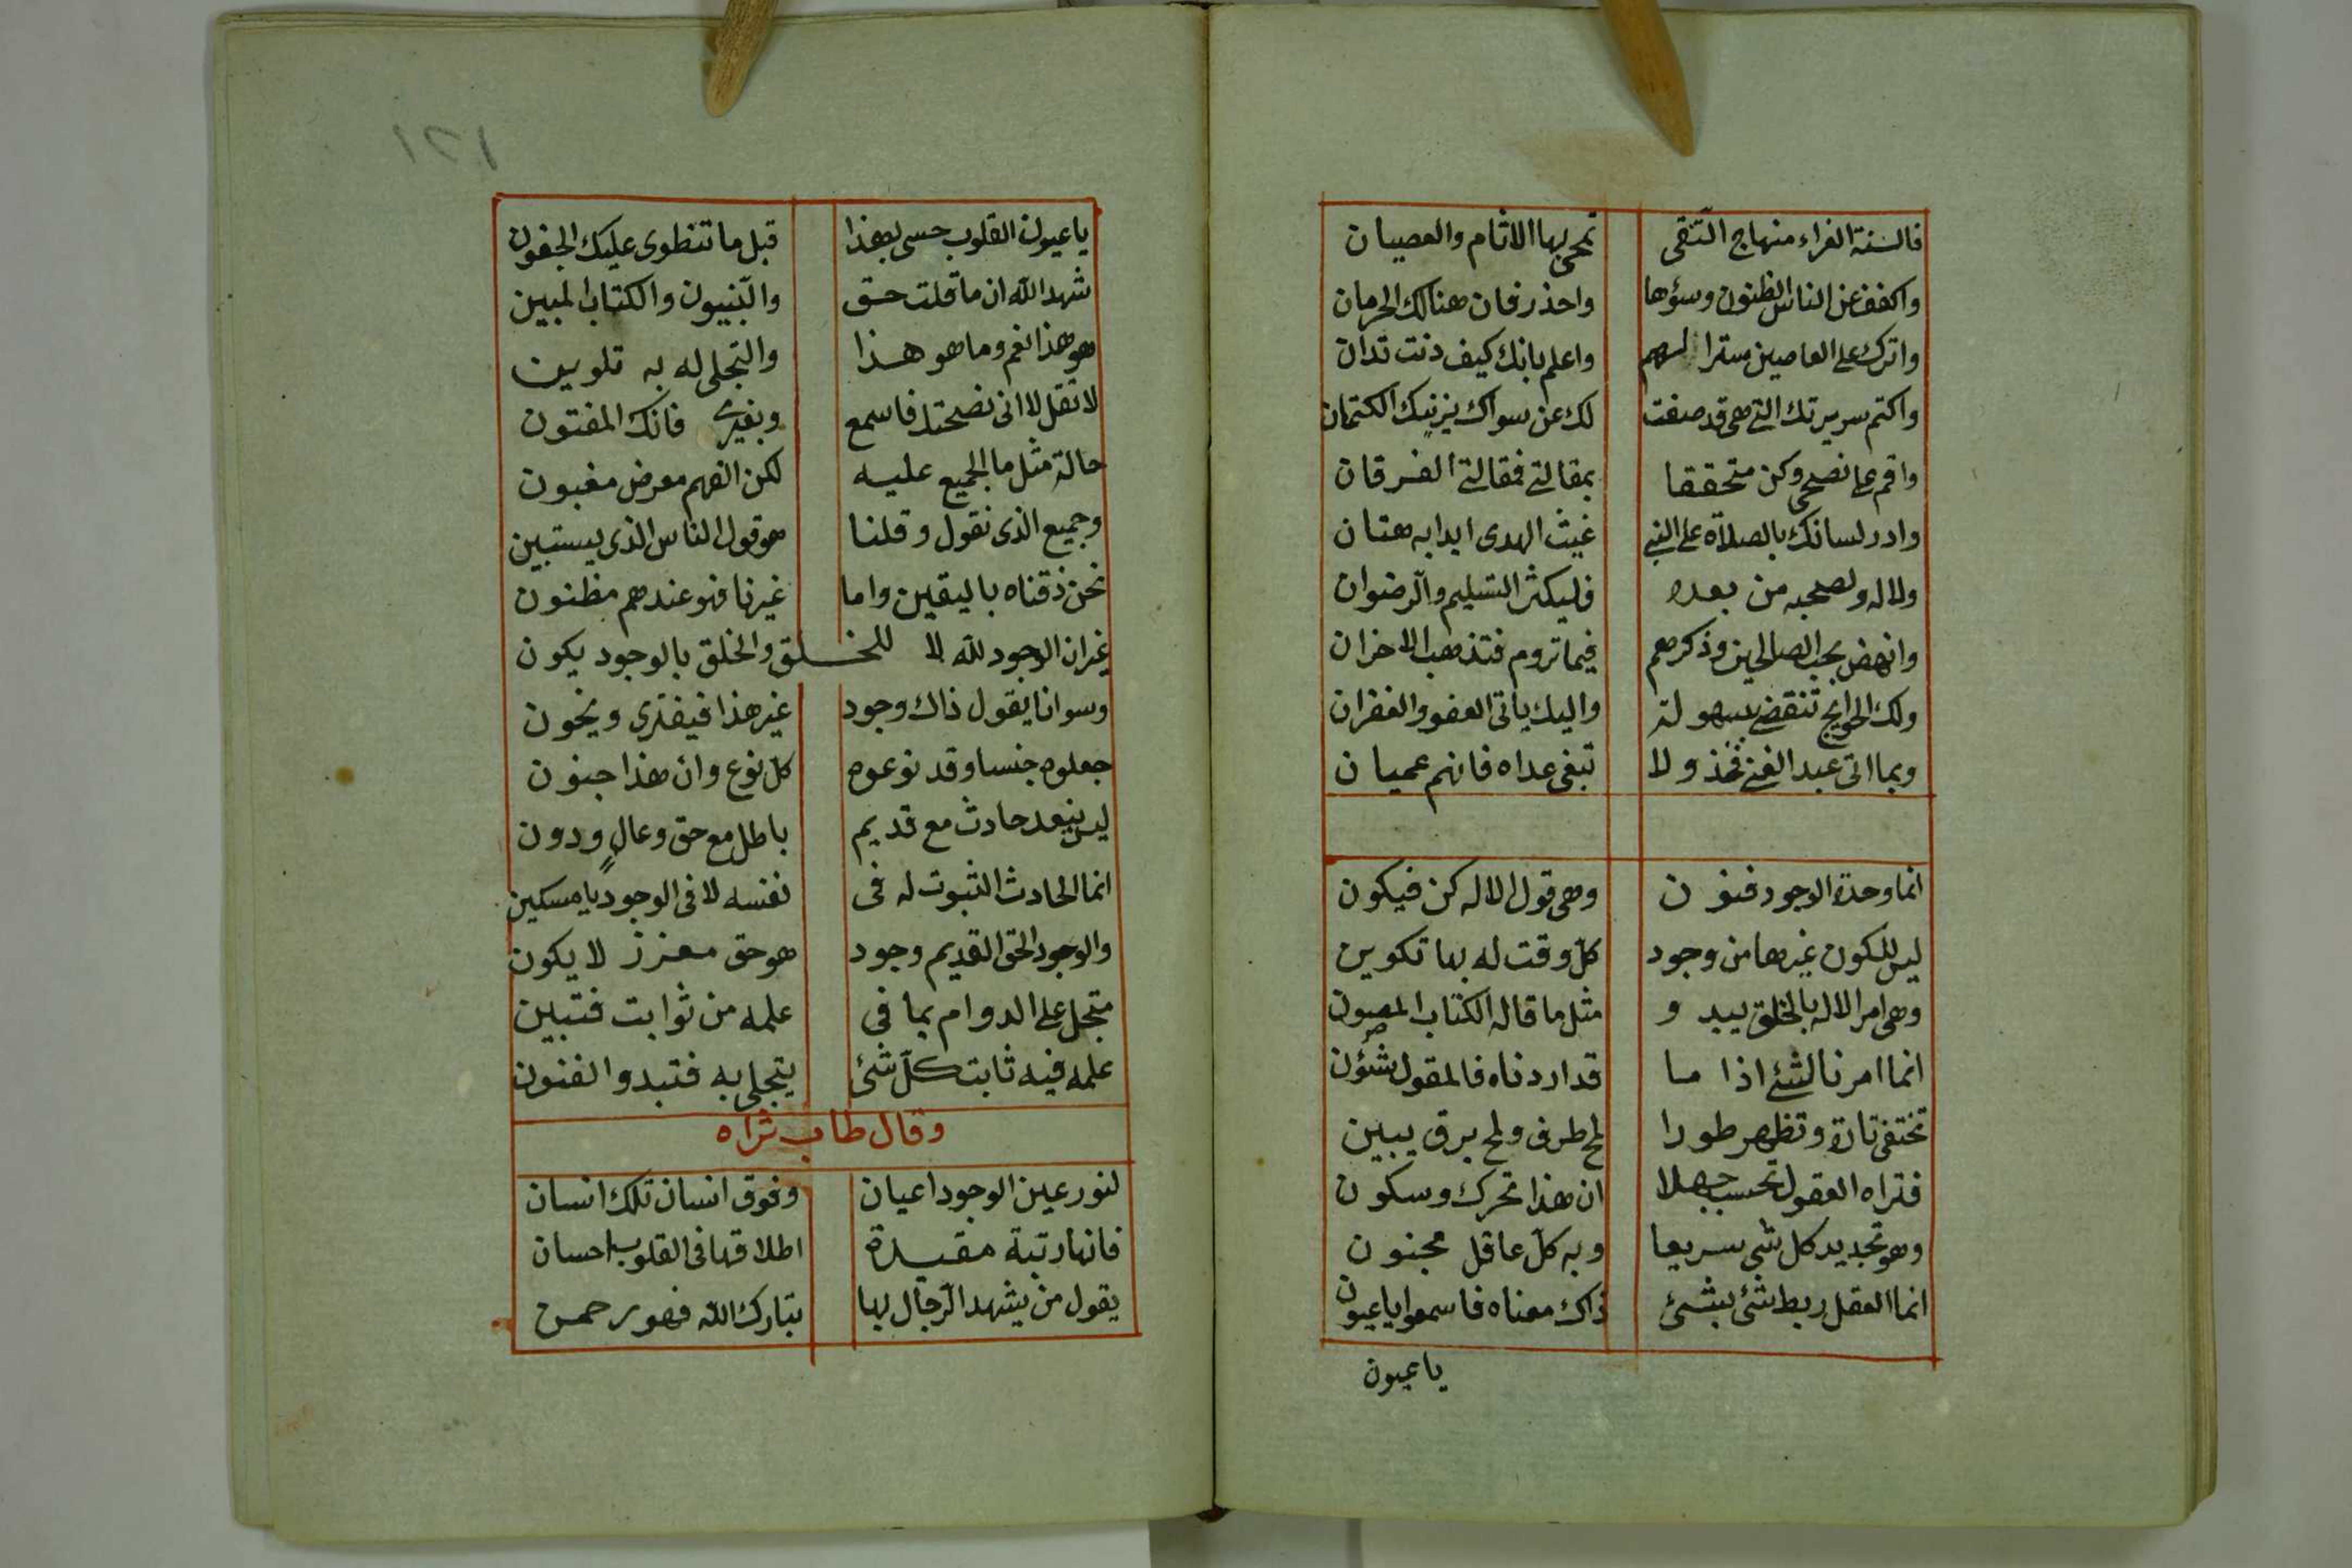 فالسنة الغراء منهاج التقى تمحى بها الاثام والعصيان
واكفف عن الناس الظنون وسؤها واحذر فان هنالك الحرمان
واترك على العاصين سترا لهم واعلم بانك كيف دنت تدان
واكتم سريرتك التي هي قد صفت لك عن سواك يزينك الكتمان
واقم على نصحي وكن متحققا بمقالتي فمقالتي الفرقان
وادر لسانك بالصلاة على النبي غيث الهدى ابدا به هتان
ولاله ولصحبه من بعده فليكثر التسليم والرضوان
وانهض بحب الصالحين وذكرهم فيما تروم فتذهب الاحزان
ولك الحوايج تنقضي بسهولة واليك ياتي العفو والغفران
وبما اتى عبد الغني فخذ ولا تبغي عداه فانهم عميان
انما وحدة الوجود فنون وهي قول الاله كن فيكون
ليس للكون غيرها من وجود كل وقت له بها تكوين
وهي امر الاله بالخلق يبدو مثل ما قاله الكتاب المصون
انما امرنا لشئ اذا ما قد اردناه فالمقول شئون
تختفي تارة وتظهر طورا لمح طرف ولمح برق يبين
فتراه العقول تحسب جهلا ان هذا تحرك وسكون
وهو تجديد كل شي سريعا وبه كل عاقل مجنون
انما العقل ربط شئ بشئ ذاك معناه فاسمعوا يا عيون
يا عيون
١٢١
يا عيون القلوب حسي بهذا قبل ما تنطوى عليك الجفون
شهد الله ان ما قلت حق والنبيون والكتاب المبين
هو هذا نعم وما هو هذا والتجلي له به تلوين
لا تقل لا اني نصحتك فاسمع وبغيري فانك المفتون
حالة مثل ما الجميع عليه لكن الفهم معرض مغبون
وجميع الذى نقول وقلنا هو قول الناس الذى يستبين
نحن ذقناه باليقين واما غيرنا فهو عندهم مظنون
غير ان الوجود لله لا للخلق والخلق بالوجود يكون
وسوانا يقول ذاك وجود غير هذا فيفترى ويخون
جعلوه جنسا وقد نوعوه كل نوع وان هذا جنون
ليس نيعد حادث مع قديم باطل مع حق وعال ودون
انما الحادث الثبوت له في نفسه لا في الوجود يا مسكين
والوجود الحق القديم وجود هو حق معزز لا يكون
متجل على الدوام بما في علمه من ثوابت فتبين
علمه فيه ثابت كل شئ يتجلى به فتبدو الفنون
وقال طاب ثراه
لنور عين الوجود اعيان وفوق انسان تلك انسان
فانها رتبة مقيدة اطلاقها في القلوب احسان
يقول من يشهد الرجال بها تبارك الله فهو رحمن